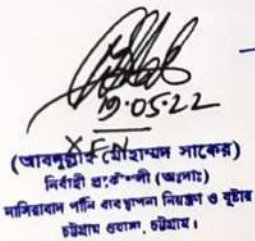 19.05.22
XEN
(আবদুল্লাহ মোহাম্মদ সাকের)
নির্বাহী প্রকৌশলী (অঃদাঃ)
নাসিরাবাদ পানি ব্যবস্থাপনা নিয়ন্ত্রণ ও বুষ্টার
চট্টগ্রাম ওয়াসা, চট্টগ্রাম।